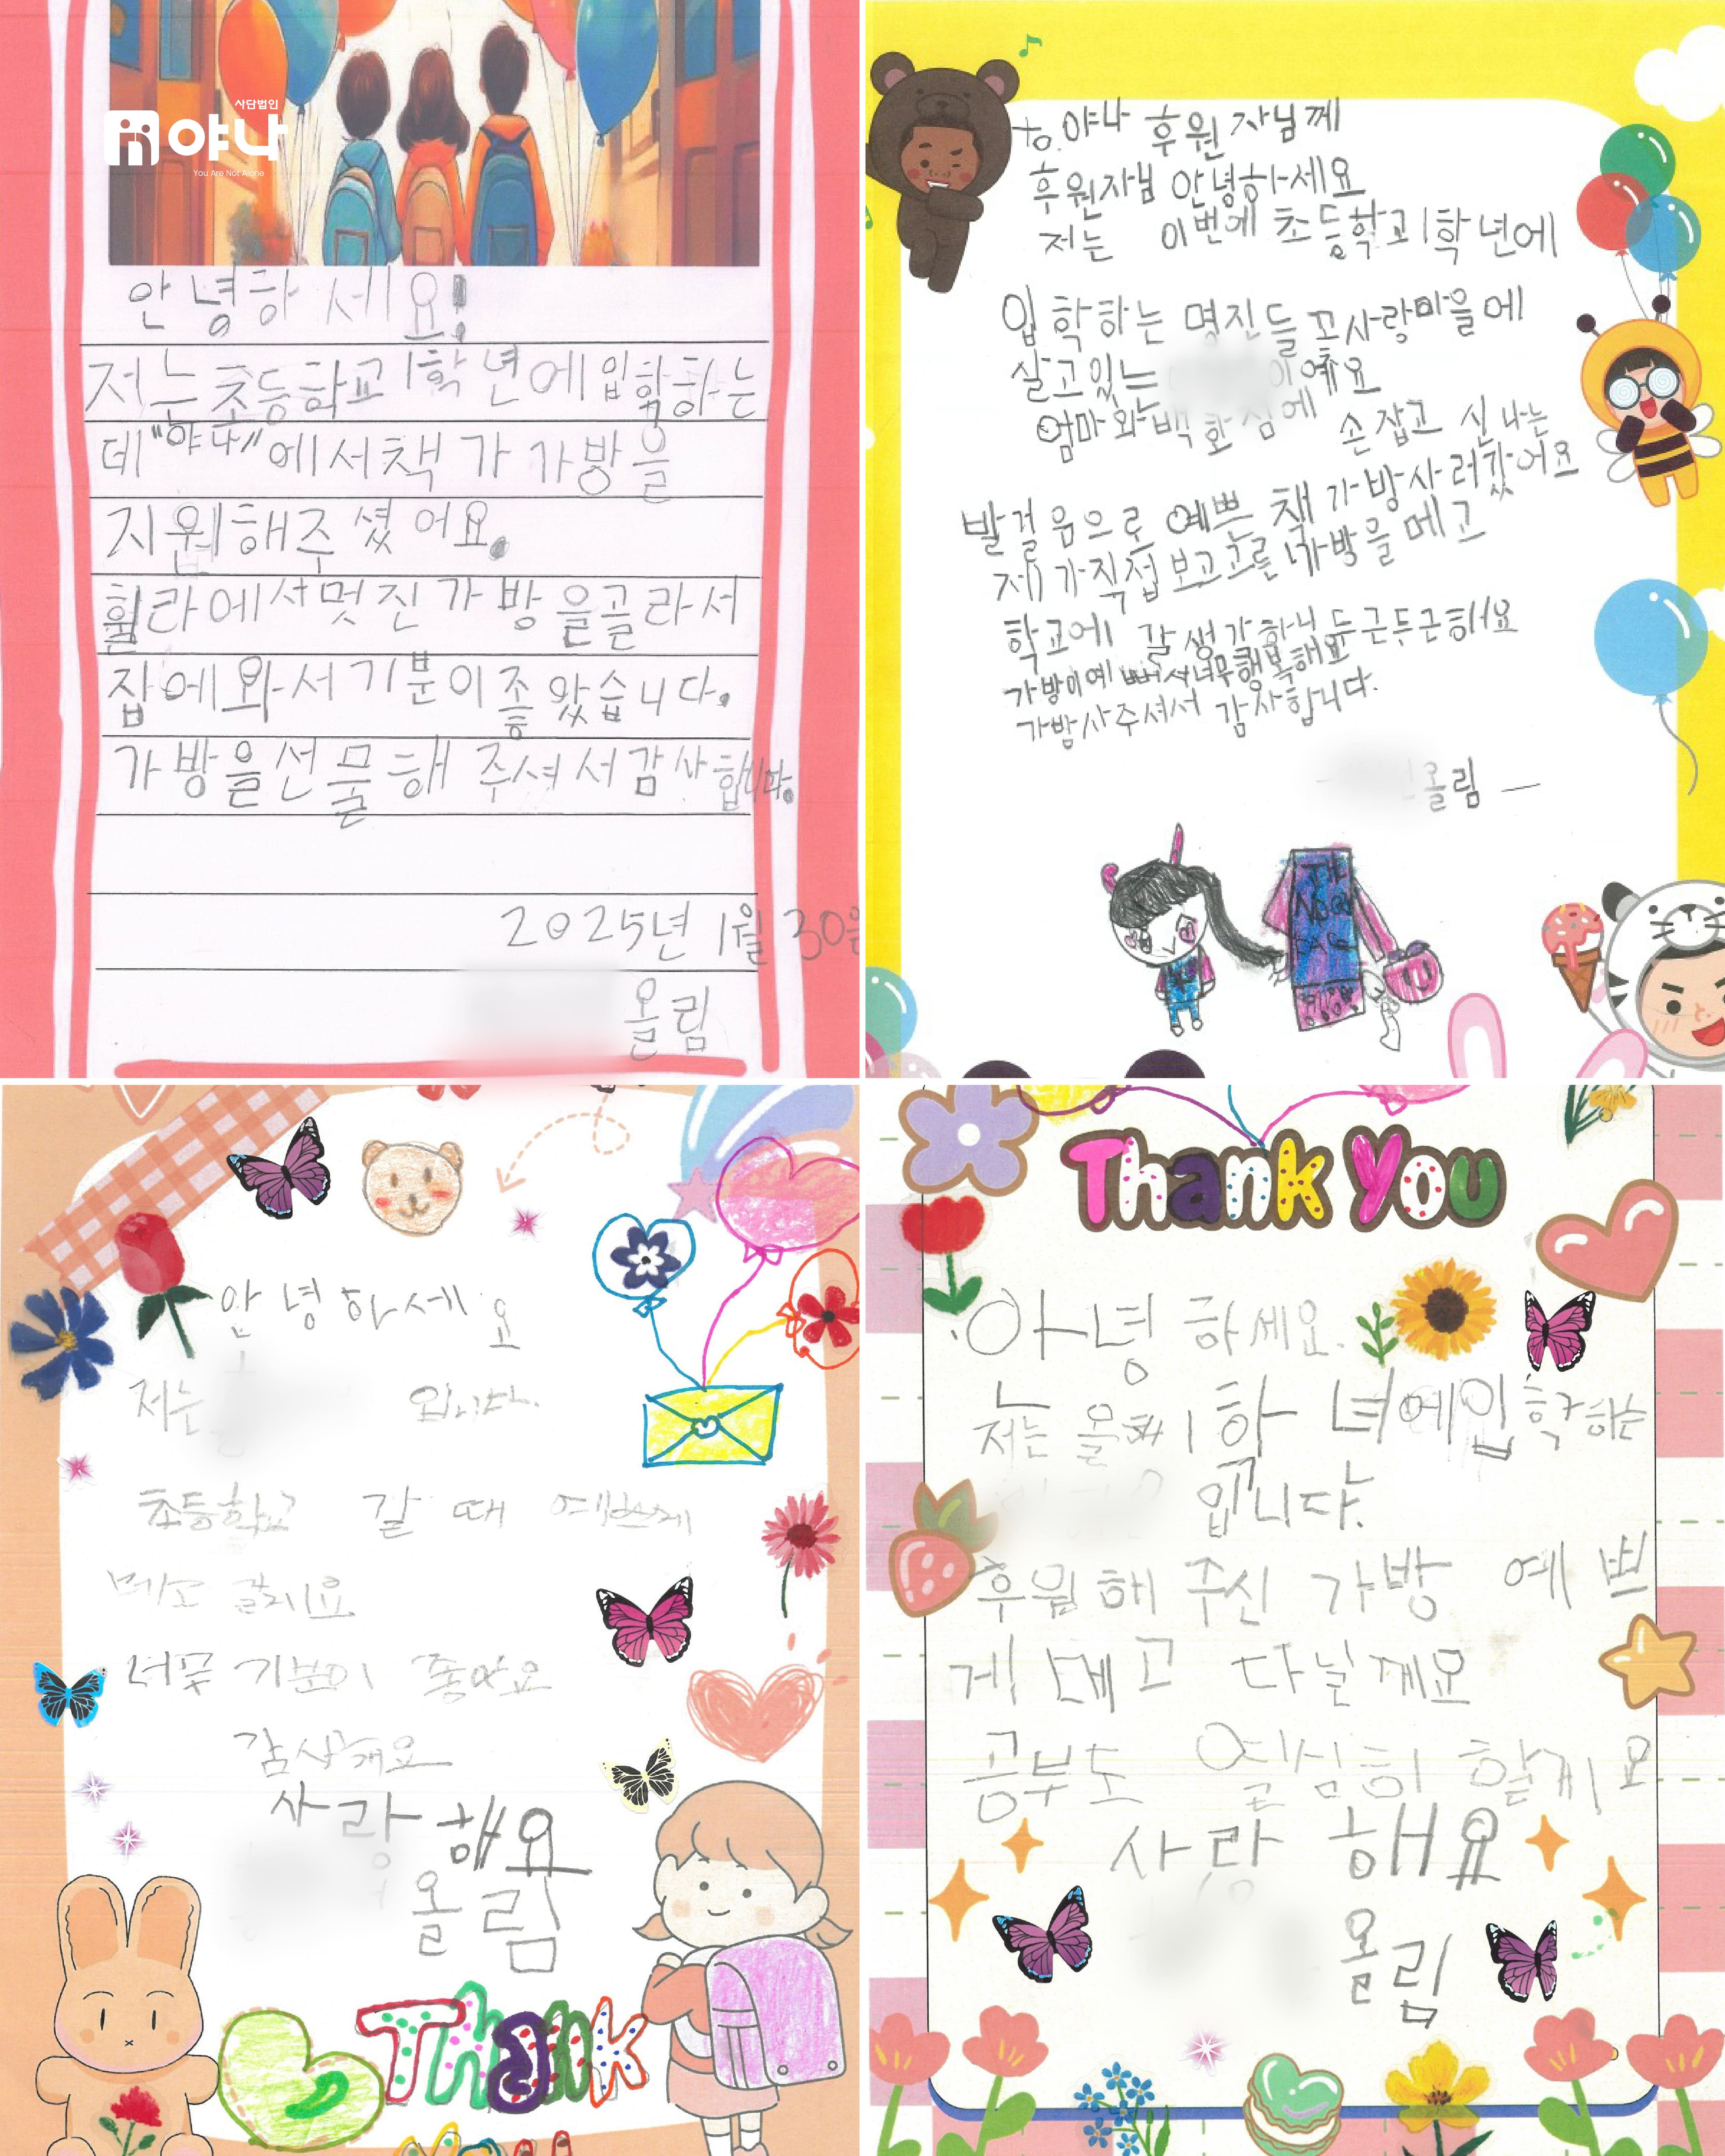 사단법인
야나
You Are Not Alone
안녕하세요!
저는 초등학교 1학년에 입학하는
데 "야나" 에서 책가 가방을
지원해주셨어요.
휠라에서 멋진 가방을 골라서
집에 와서 기분이 좋았습니다.
가방을 선물해 주셔서 감사합니다.
2025년 1월 30일
올림
to.야나 후원자님께
후원자님 안녕하세요
저는 이번에 초등학교 1학년에
입학하는 명진들꽃사랑마을에
살고있는 이예요
엄마와 백화점에 손잡고 신나는
발걸음으로 예쁜 책가방 사러갔어요
제가 직접 보고 고른 가방을 메고
학교에 갈 생각하니 두근두근해요
가방이 예뻐서 너무 행복해요
가방 사주셔서 감사합니다.
올림
안녕하세요
저는 입니다.
초등학교 갈 때 예쁘게
메고 갈게요
너무 기분이 좋아요
감사해요
사랑해요
올림
Thank
You
Thank You
아녕하세요.
저는 올해 1하녀에 입학하는
입니다.
후원해 주신 가방 예쁘
게 메고 다닐께요
공부도 열심히 할게요
사랑해요
올림